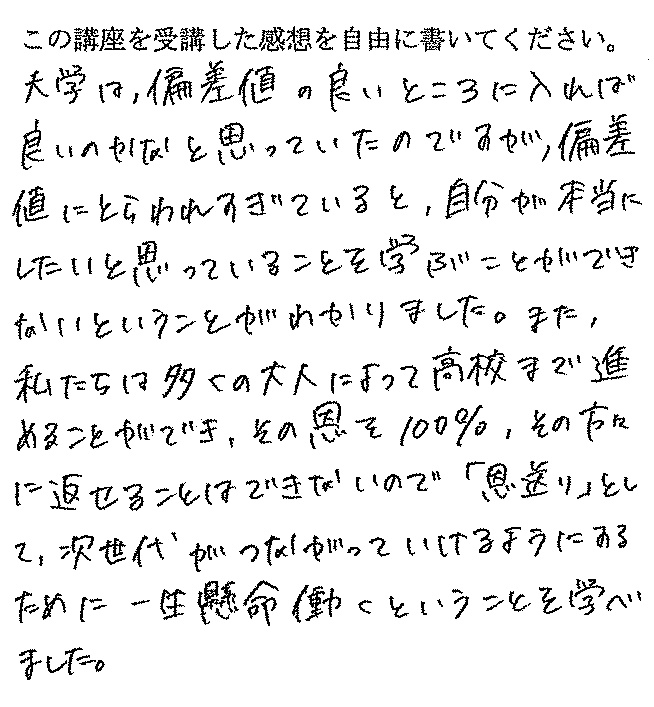 この講座を受講した感想を自由に書いてください。
大学は,偏差値の良いところに入れば
良いのかなと思っていたのですが,偏差
値にとらわれすぎていると,自分が本当に
したいと思っていることを学ぶことができ
ないということがわかりました。また,
私たちは多くの大人によって高校まで進
めることができ,その恩を100%,その方々
に返せることはできないので「恩送り」とし
て,次世代がつながっていけるようにする
ために一生懸命働くということを学べ
ました。